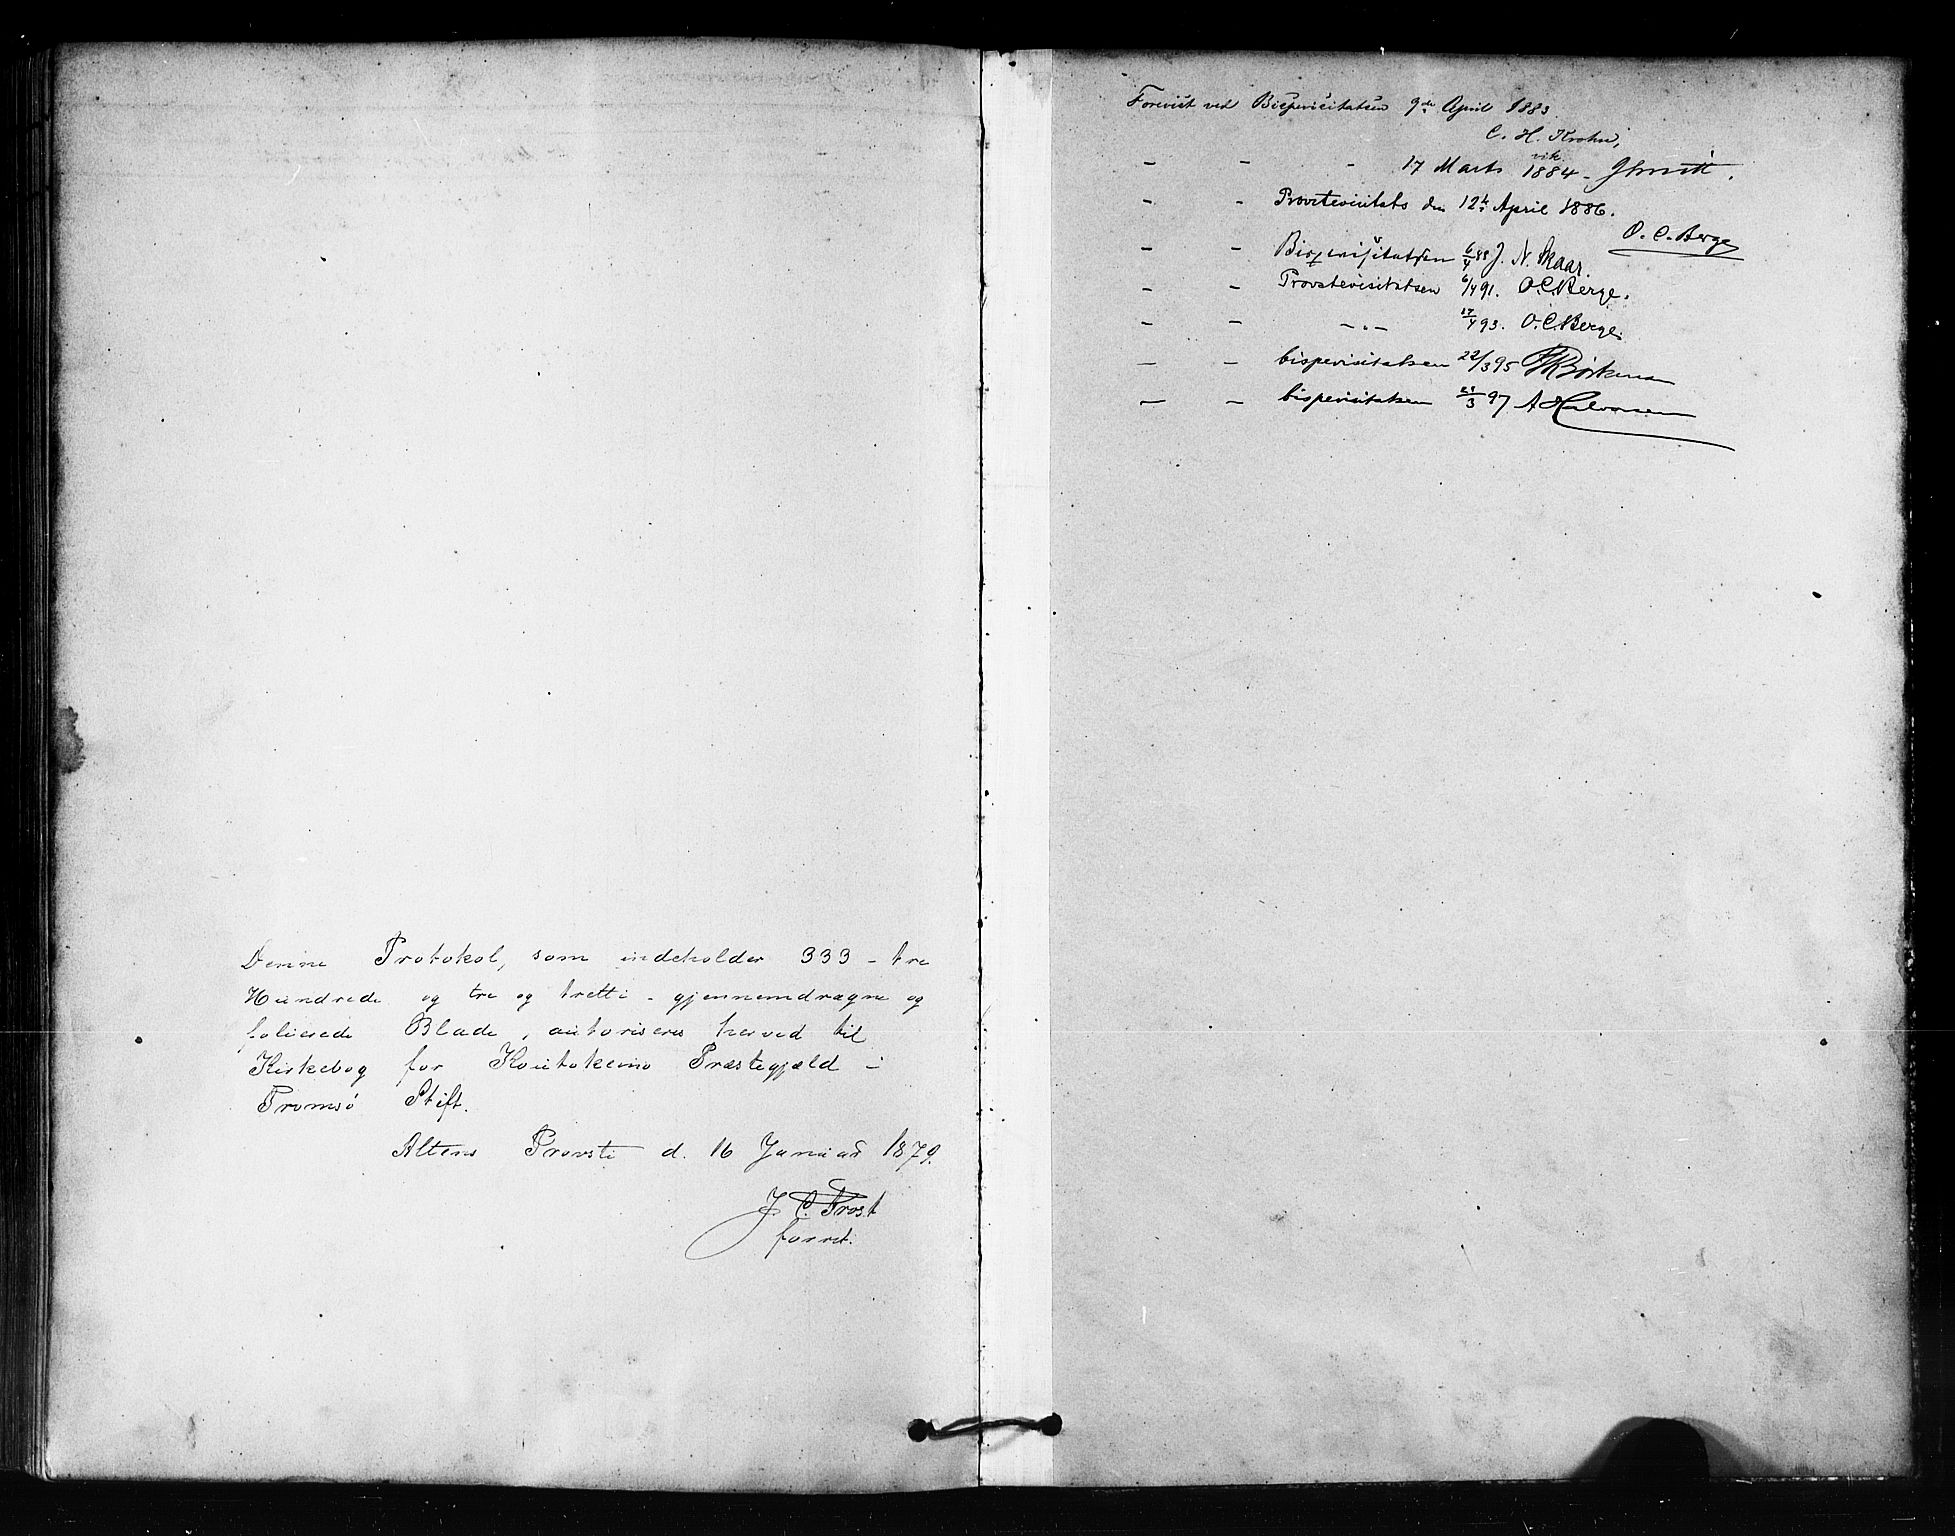 Denne Protokol, som indeholder 333 - tre
Hundrede og tre og tretti - gjennemdragne og
folierede Blade, autoriseres herved til
Kirkebog for Koutokeino Præstegjæld i
Tromsö Stift.
Altens Provsti d. 16 Januar 1879.
J. C. Frost
Forevist ved Bispevisitatsen 9de April 1883
C. H. Krohn,
vik.
- - - 17 Marts 1884 -
- - Provstevisitats den 12te April 1886.
O. C. Berge
- - Bispevisitatsen 6/4 88 J. N. Skaar.
- - Provstevisitatsen 6/4 91. O. C. Berge.
- - -"- 17/4 93. O. C. Berge.
- - bispevisitatsen 22/3 95
- - bispevisitatsen 21/3 97 A Halvorsen